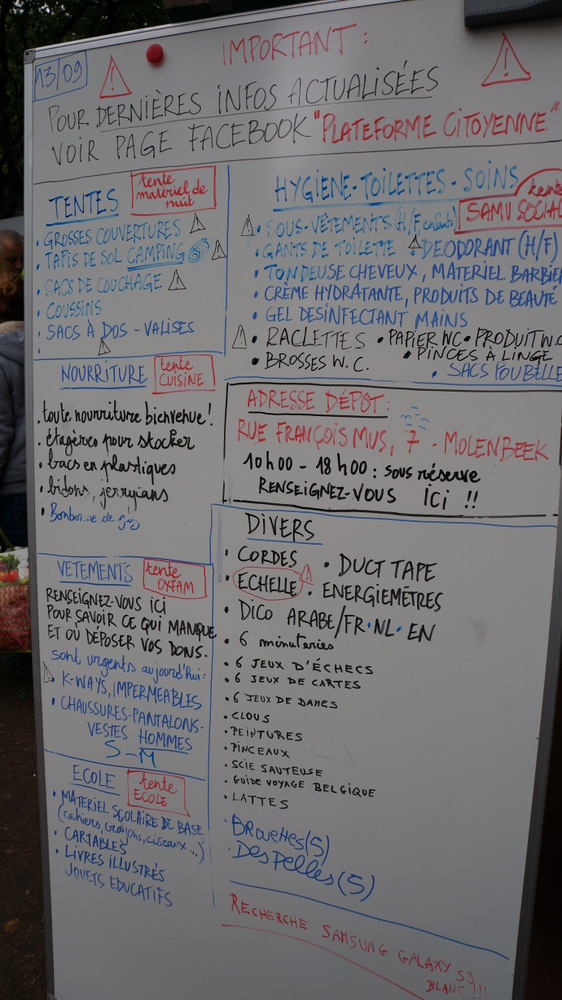 13/09
IMPORTANT :
POUR DERNIÈRES INFOS ACTUALISÉES
VOIR PAGE FACEBOOK "PLATEFORME CITOYENNE"
TENTES
tente matériel de nuit
• GROSSES COUVERTURES
• TAPIS DE SOL CAMPING
• SACS DE COUCHAGE
• COUSSINS
• SACS À DOS - VALISES
NOURRITURE
tente CUISINE
• toute nourriture bienvenue!
• étagères pour stocker
• bacs en plastiques
• bidons, jerrycans
VETEMENTS
tente OXFAM
RENSEIGNEZ-VOUS ICI
POUR SAVOIR CE QUI MANQUE
ET OÙ DÉPOSER VOS DONS.
sont urgents aujourd'hui:
• K-WAYS, IMPERMEABLES
• CHAUSSURES-PANTALONS-
VESTES HOMMES
S-M
ECOLE
tente ECOLE
• MATERIEL SCOLAIRE DE BASE
(cahiers, crayons, ciseaux...)
• CARTABLES
• LIVRES ILLUSTRÉS
JOUETS EDUCATIFS
HYGIENE-TOILETTES-SOINS
tente
SAMU SOCIAL
• SOUS-VÊTEMENTS (H/F, enfants)
• GANTS DE TOILETTE • DEODORANT (H/F)
• TONDEUSE CHEVEUX, MATERIEL BARBIER
• CRÈME HYDRATANTE, PRODUITS DE BEAUTÉ
• GEL DESINFECTANT MAINS
• RACLETTES • PAPIER WC • PRODUIT W.C
• BROSSES W.C. • PINCES À LINGE
• SACS POUBELLE
ADRESSE DÉPOT :
RUE FRANÇOIS MUS, 7 - MOLENBEEK
10h00 - 18h00 : sous réserve
RENSEIGNEZ-VOUS ICI !!
DIVERS
• CORDES • DUCT TAPE
• ECHELLE • ENERGIEMÈTRES
• DICO ARABE/FR•NL•EN
• 6 minuteries
• 6 JEUX D'ÉCHECS
• 6 JEUX DE CARTES
• 6 JEUX DE DAMES
• CLOUS
• PEINTURES
• PINCEAUX
• SCIE SAUTEUSE
• GUIDE VOYAGE BELGIQUE
• LATTES
• BROUETTES(5)
• DES PELLES(5)
RECHERCHE SAMSUNG GALAXY S3
BLANC !!!